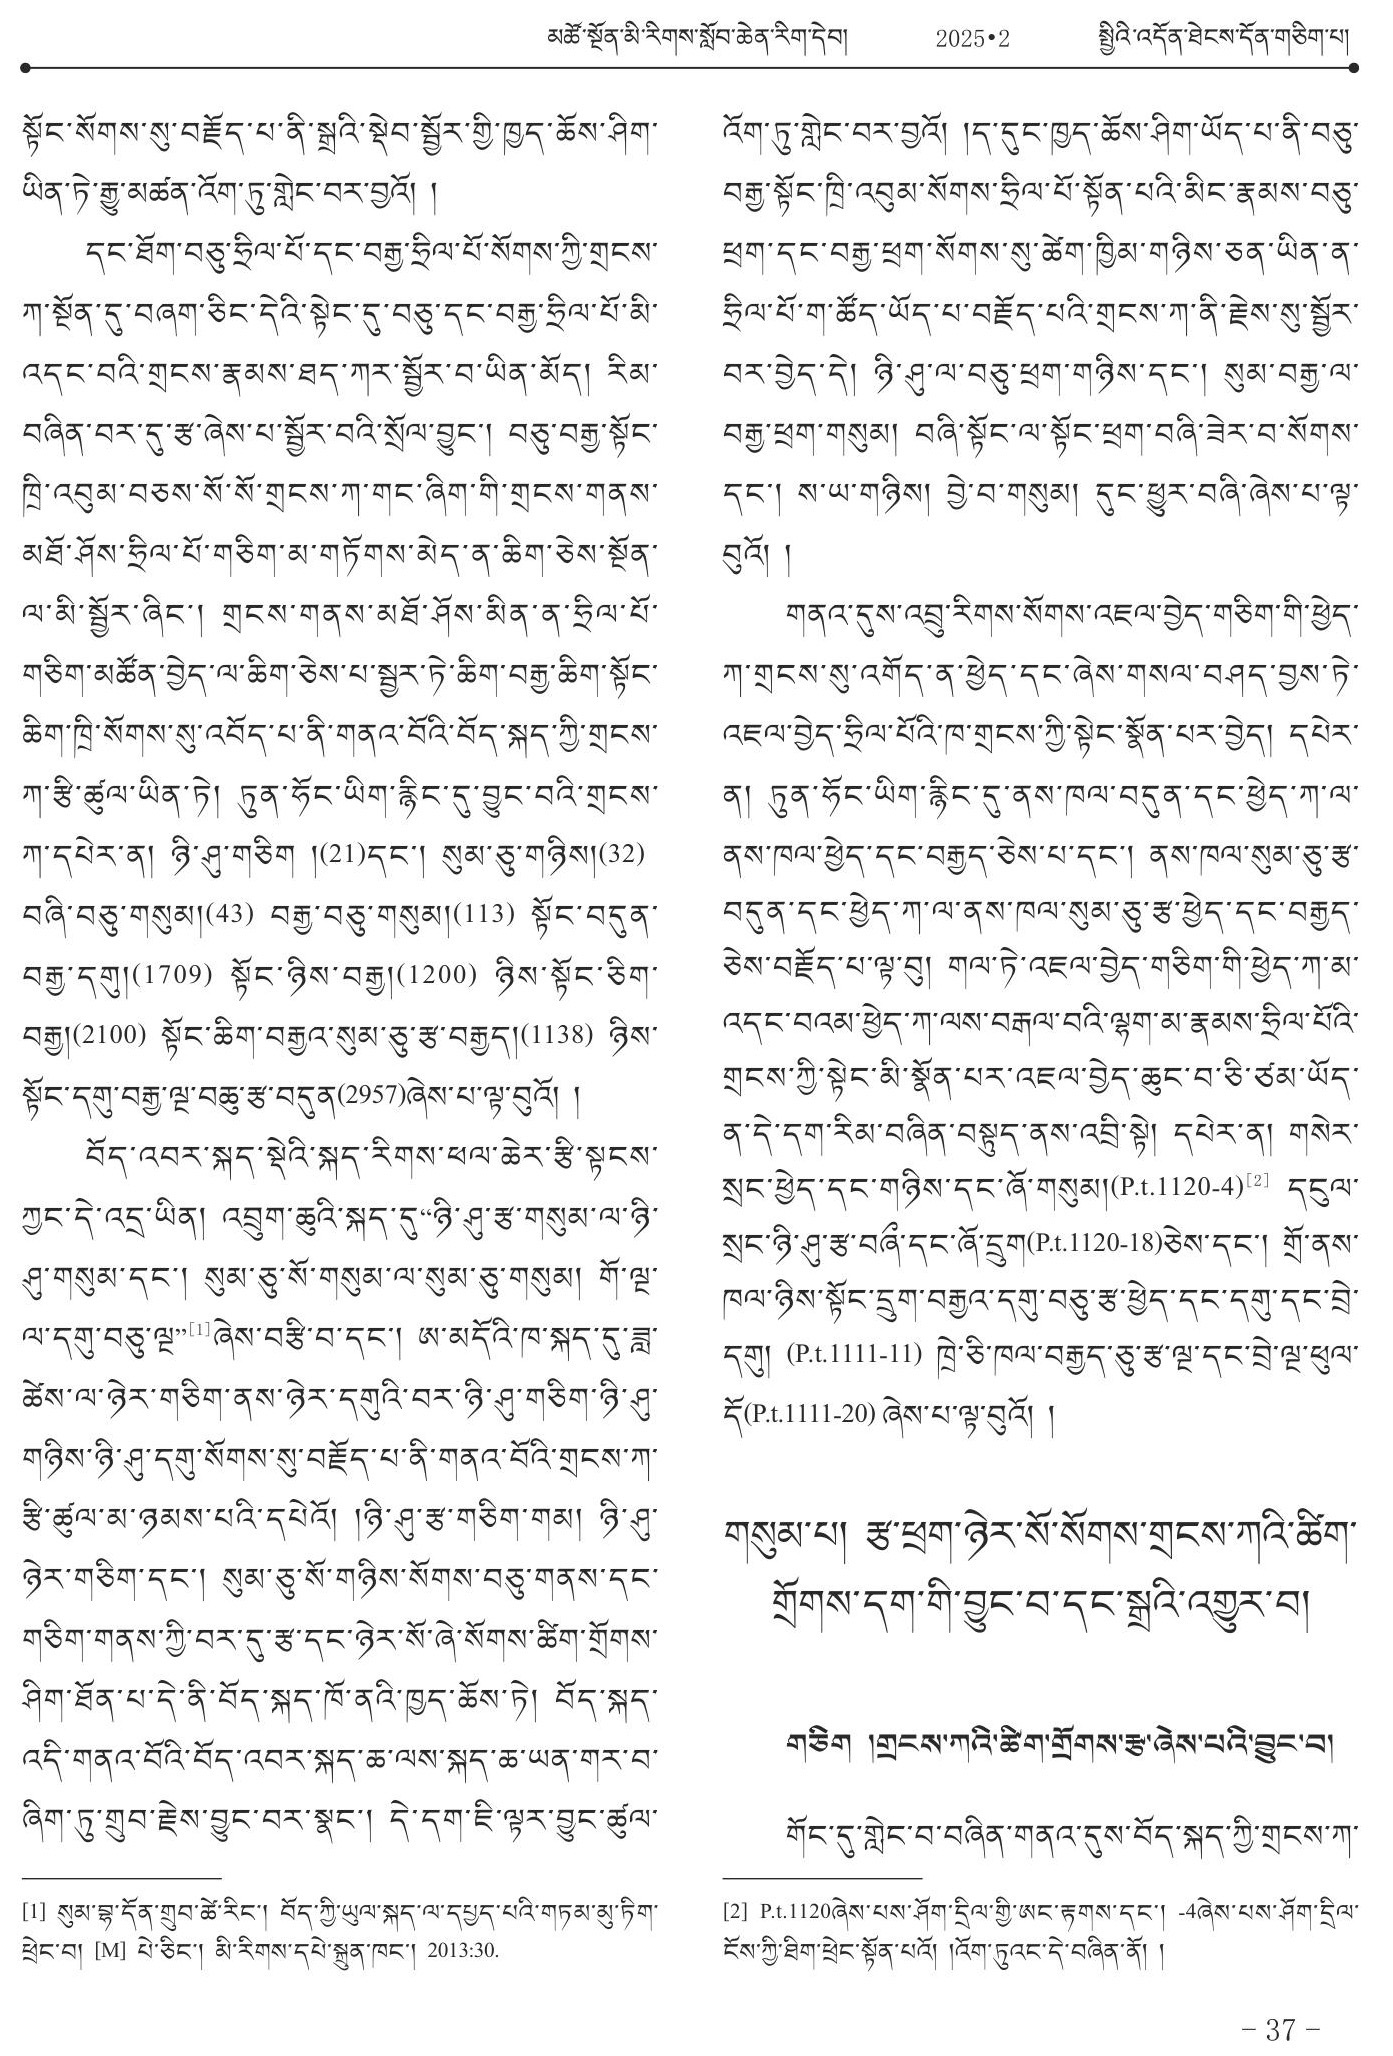 མཚོ་སྔོན་མི་རིགས་སློབ་ཆེན་རིག་དེབ། 2025•2 སྤྱིའི་འདོན་ཐེངས་དོན་གཅིག་པ།
སྟོང་སོགས་སུ་བརྗོད་པ་ནི་སྒྲའི་སྡེབ་སྦྱོར་གྱི་ཁྱད་ཆོས་ཤིག་
ཡིན་ཏེ་རྒྱུ་མཚན་འོག་ཏུ་གླེང་བར་བྱའོ། །
དང་ཐོག་བཅུ་ཧྲིལ་པོ་དང་བརྒྱ་ཧྲིལ་པོ་སོགས་ཀྱི་གྲངས་
ཀ་སྔོན་དུ་བཞག་ཅིང་དེའི་སྟེང་དུ་བཅུ་དང་བརྒྱ་ཧྲིལ་པོ་མི་
འདང་བའི་གྲངས་རྣམས་ཐད་ཀར་སྦྱོར་བ་ཡིན་མོད། རིམ་
བཞིན་བར་དུ་རྩ་ཞེས་པ་སྦྱོར་བའི་སྲོལ་བྱུང་། བཅུ་བརྒྱ་སྟོང་
ཁྲི་འབུམ་བཅས་སོ་སོ་གྲངས་ཀ་གང་ཞིག་གི་གྲངས་གནས་
མཐོ་ཤོས་ཧྲིལ་པོ་གཅིག་མ་གཏོགས་མེད་ན་ཆིག་ཅེས་སྔོན་
ལ་མི་སྦྱོར་ཞིང་། གྲངས་གནས་མཐོ་ཤོས་མིན་ན་ཧྲིལ་པོ་
གཅིག་མཚོན་བྱེད་ལ་ཆིག་ཅེས་པ་སྦྱར་ཏེ་ཆིག་བརྒྱ་ཆིག་སྟོང་
ཆིག་ཁྲི་སོགས་སུ་འབོད་པ་ནི་གནའ་བོའི་བོད་སྐད་ཀྱི་གྲངས་
ཀ་རྩི་ཚུལ་ཡིན་ཏེ། ཏུན་ཧོང་ཡིག་རྙིང་དུ་བྱུང་བའི་གྲངས་
ཀ་དཔེར་ན། ཉི་ཤུ་གཅིག །(21)དང་། སུམ་ཅུ་གཉིས།(32)
བཞི་བཅུ་གསུམ།(43) བརྒྱ་བཅུ་གསུམ།(113) སྟོང་བདུན་
བརྒྱ་དགུ།(1709) སྟོང་ཉིས་བརྒྱ།(1200) ཉིས་སྟོང་ཅིག་
བརྒྱ།(2100) སྟོང་ཆིག་བརྒྱའ་སུམ་ཅུ་རྩ་བརྒྱད།(1138) ཉིས་
སྟོང་དགུ་བརྒྱ་ལྔ་བཆུ་རྩ་བདུན(2957)ཞེས་པ་ལྟ་བུའོ། །
བོད་འབར་སྐད་སྡེའི་སྐད་རིགས་ཕལ་ཆེར་རྩི་སྟངས་
ཀྱང་དེ་འདྲ་ཡིན། འབྲུག་ཆུའི་སྐད་དུ“ཉི་ཤུ་རྩ་གསུམ་ལ་ཉི་
ཤུ་གསུམ་དང་། སུམ་ཅུ་སོ་གསུམ་ལ་སུམ་ཅུ་གསུམ། གོ་ལྔ་
ལ་དགུ་བཅུ་ལྔ”[1]ཞེས་བརྩི་བ་དང་། ཨ་མདོའི་ཁ་སྐད་དུ་ཟླ་
ཚེས་ལ་ཉེར་གཅིག་ནས་ཉེར་དགུའི་བར་ཉི་ཤུ་གཅིག་ཉི་ཤུ་
གཉིས་ཉི་ཤུ་དགུ་སོགས་སུ་བརྗོད་པ་ནི་གནའ་བོའི་གྲངས་ཀ་
རྩི་ཚུལ་མ་ཉམས་པའི་དཔེའོ། །ཉི་ཤུ་རྩ་གཅིག་གམ། ཉི་ཤུ་
ཉེར་གཅིག་དང་། སུམ་ཅུ་སོ་གཉིས་སོགས་བཅུ་གནས་དང་
གཅིག་གནས་ཀྱི་བར་དུ་རྩ་དང་ཉེར་སོ་ཞེ་སོགས་ཚིག་གྲོགས་
ཤིག་ཐོན་པ་དེ་ནི་བོད་སྐད་ཁོ་ནའི་ཁྱད་ཆོས་ཏེ། བོད་སྐད་
འདི་གནའ་བོའི་བོད་འབར་སྐད་ཆ་ལས་སྐད་ཆ་ཡན་གར་བ་
ཞིག་ཏུ་གྲུབ་རྗེས་བྱུང་བར་སྣང་། དེ་དག་ཇི་ལྟར་བྱུང་ཚུལ་
[1] སུམ་བྷ་དོན་གྲུབ་ཚེ་རིང་། བོད་ཀྱི་ཡུལ་སྐད་ལ་དཔྱད་པའི་གཏམ་མུ་ཏིག་
ཕྲེང་བ། [M] པེ་ཅིང་། མི་རིགས་དཔེ་སྐྲུན་ཁང་། 2013:30.
འོག་ཏུ་གླེང་བར་བྱའོ། །ད་དུང་ཁྱད་ཆོས་ཤིག་ཡོད་པ་ནི་བཅུ་
བརྒྱ་སྟོང་ཁྲི་འབུམ་སོགས་ཧྲིལ་པོ་སྟོན་པའི་མིང་རྣམས་བཅུ་
ཕྲག་དང་བརྒྱ་ཕྲག་སོགས་སུ་ཚེག་ཁྱིམ་གཉིས་ཅན་ཡིན་ན་
ཧྲིལ་པོ་ག་ཚོད་ཡོད་པ་བརྗོད་པའི་གྲངས་ཀ་ནི་རྗེས་སུ་སྦྱོར་
བར་བྱེད་དེ། ཉི་ཤུ་ལ་བཅུ་ཕྲག་གཉིས་དང་། སུམ་བརྒྱ་ལ་
བརྒྱ་ཕྲག་གསུམ། བཞི་སྟོང་ལ་སྟོང་ཕྲག་བཞི་ཟེར་བ་སོགས་
དང་། ས་ཡ་གཉིས། བྱེ་བ་གསུམ། དུང་ཕྱུར་བཞི་ཞེས་པ་ལྟ་
བུའོ། །
གནའ་དུས་འབྲུ་རིགས་སོགས་འཇལ་བྱེད་གཅིག་གི་ཕྱེད་
ཀ་གྲངས་སུ་འགོད་ན་ཕྱེད་དང་ཞེས་གསལ་བཤད་བྱས་ཏེ་
འཇལ་བྱེད་ཧྲིལ་པོའི་ཁ་གྲངས་ཀྱི་སྟེང་སྣོན་པར་བྱེད། དཔེར་
ན། ཏུན་ཧོང་ཡིག་རྙིང་དུ་ནས་ཁལ་བདུན་དང་ཕྱེད་ཀ་ལ་
ནས་ཁལ་ཕྱེད་དང་བརྒྱད་ཅེས་པ་དང་། ནས་ཁལ་སུམ་ཅུ་རྩ་
བདུན་དང་ཕྱེད་ཀ་ལ་ནས་ཁལ་སུམ་ཅུ་རྩ་ཕྱེད་དང་བརྒྱད་
ཅེས་བརྗོད་པ་ལྟ་བུ། གལ་ཏེ་འཇལ་བྱེད་གཅིག་གི་ཕྱེད་ཀ་མ་
འདང་བའམ་ཕྱེད་ཀ་ལས་བརྒལ་བའི་ལྷག་མ་རྣམས་ཧྲིལ་པོའི་
གྲངས་ཀྱི་སྟེང་མི་སྣོན་པར་འཇལ་བྱེད་ཆུང་བ་ཅི་ཙམ་ཡོད་
ན་དེ་དག་རིམ་བཞིན་བསྟུད་ནས་འབྲི་སྟེ། དཔེར་ན། གསེར་
སྲང་ཕྱེད་དང་གཉིས་དང་ཞོ་གསུམ།(P.t.1120-4)[2] དངུལ་
སྲང་ཉི་ཤུ་རྩ་བཞྀ་དང་ཞོ་དྲུག(P.t.1120-18)ཅེས་དང་། གྲོ་ནས་
ཁལ་ཉིས་སྟོང་དྲུག་བརྒྱའ་དགུ་བཅུ་རྩ་ཕྱེད་དང་དགུ་དང་བྲེ་
དགུ། (P.t.1111-11) ཁྲེ་ཅི་ཁལ་བརྒྱད་ཅུ་རྩ་ལྔ་དང་བྲེ་ལྔ་ཕུལ་
དོ(P.t.1111-20) ཞེས་པ་ལྟ་བུའོ། །
གསུམ་པ། རྩ་ཕྲག་ཉེར་སོ་སོགས་གྲངས་ཀའི་ཚིག་
གྲོགས་དག་གི་བྱུང་བ་དང་སྒྲའི་འགྱུར་བ།
གཅིག །གྲངས་ཀའི་ཚིག་གྲོགས་རྩ་ཞེས་པའི་བྱུང་བ།
གོང་དུ་གླེང་བ་བཞིན་གནའ་དུས་བོད་སྐད་ཀྱི་གྲངས་ཀ་
[2] P.t.1120ཞེས་པས་ཤོག་དྲིལ་གྱི་ཨང་རྟགས་དང་། -4ཞེས་པས་ཤོག་དྲིལ་
ངོས་ཀྱི་ཐིག་ཕྲེང་སྟོན་པའོ། །འོག་ཏུའང་དེ་བཞིན་ནོ། །
– 37 –